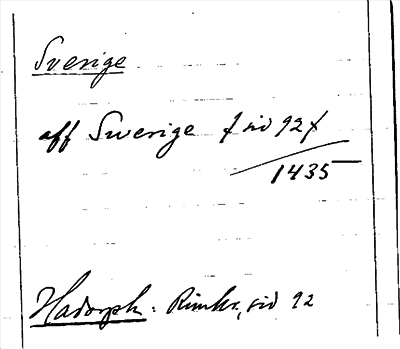 Sverige
aff Swerige f sid 92 f
1435
Hadorph: Rimkr, sid 92